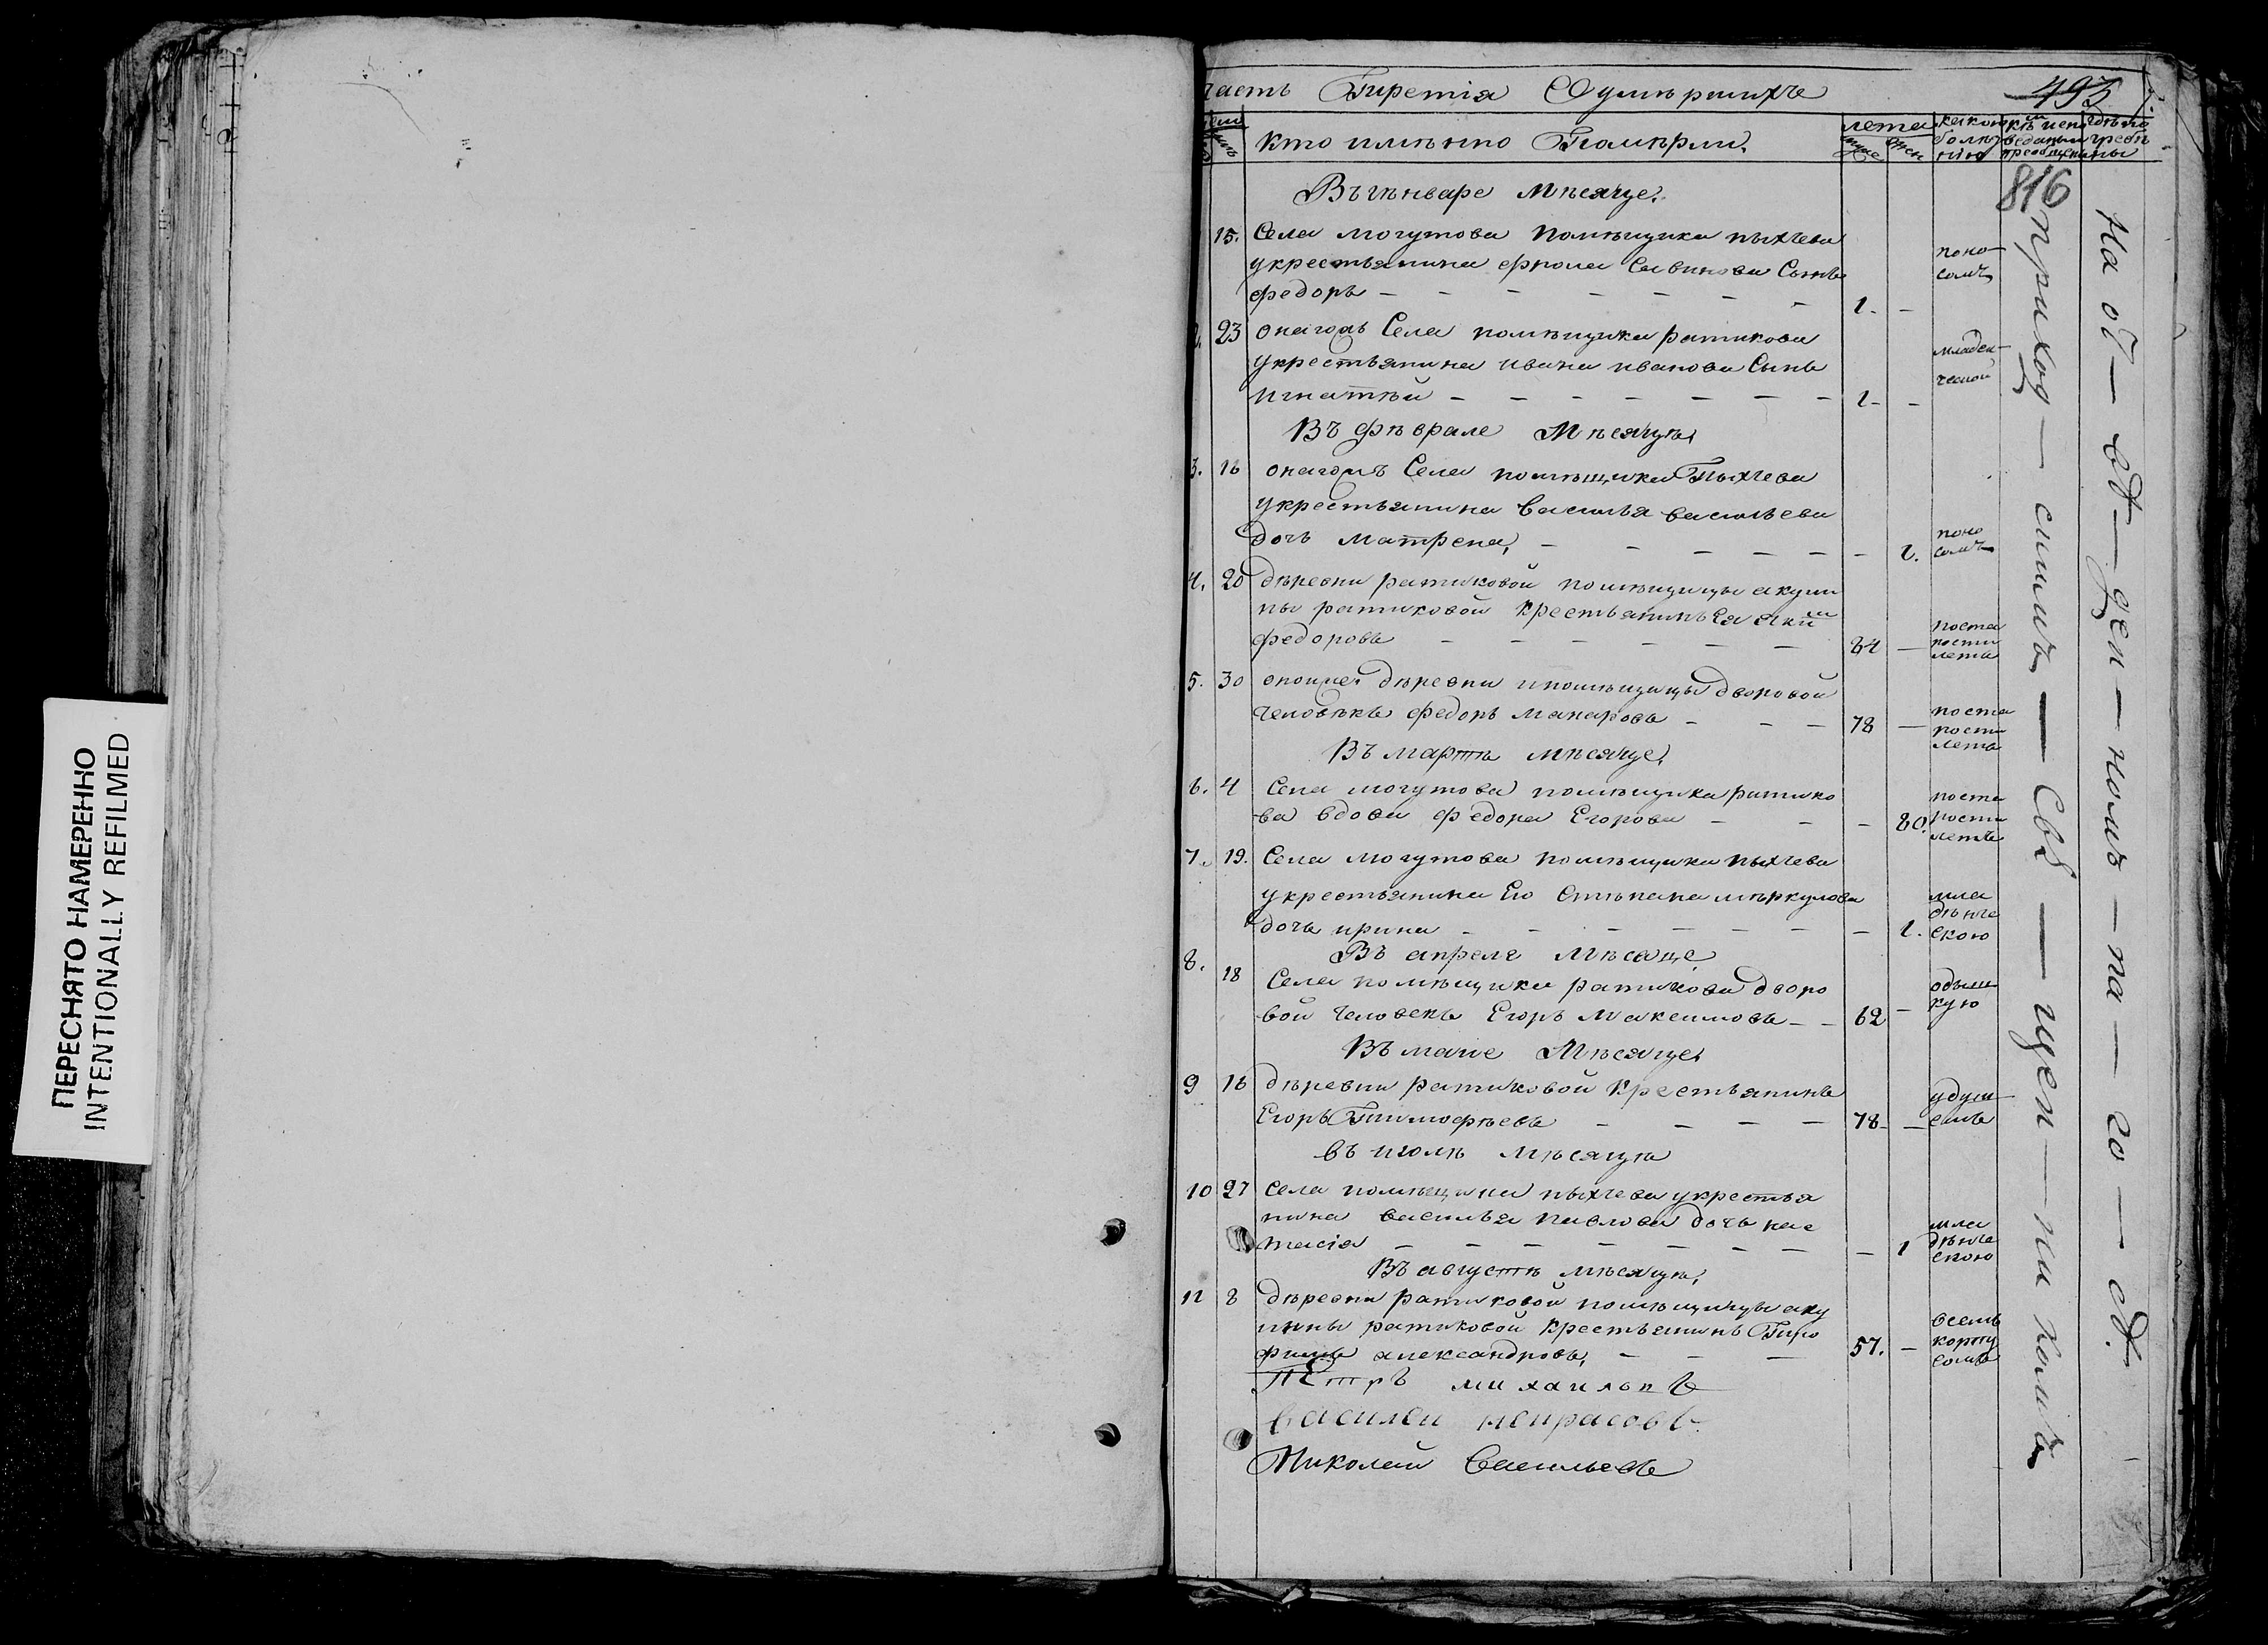 ПЕРЕСНЯТО НАМЕРЕННО
INTENTIONALLY REFILMED
часть Третія Оумѣршихъ
493
кто имѣнно Помѣрли.
лета
муж
жен
какою
болѣ
нію
кѣм испо
веданы и
преобщены
гдѣ по
гребѣ
ны
816
Въ генваре мѣсяце.
15. Села могутова помѣщика пыхчева
укрестьянина фрола Савинова Сынъ
федоръ — — — — — — — 1. —
поно
сомъ
2. 23 онагожъ Села помѣщика ратикова
укрестьянина ивана иванова Сынъ
игнатѣй — — — — — — — 1 — —
младен
ческой
Въ фѣврале Мѣсяцѣ,
3. 16 онагожъ Села помѣщика Пыхчева
укрестьянина василья васильева
дочь матрена, — — — — — — 1.
поно
сомъ
4. 20 дѣревни ратиковой помѣщицы акули
ны ратиковой крестьянинъ Ея аким
федоровъ — — — — — — 84 —
поста
рости
лета
5. 30 оной деревни и помѣщицы дворовой
человѣкъ федоръ макаровъ — — — 78 —
поста
рости
лета
Въ мартѣ мѣсяце,
6. 4 Села могутова помѣщика ратико
ва вдова федора Егорова — — — 80.
поста
рости
летъ
7. 19. Села могутова помѣщика пыхчева
укрестьянина Его стѣпана мѣркулова
дочь ирина — — — — — — — 1.
мла
дѣнче
скою
Въ апреле мѣсяце
8. 18 Села помѣщика ратикова дворо
вой человекъ Егоръ Максимовъ — — 62 —
одыш
кую
Въ маие Мѣсяце,
9 16 дѣревни ратиковой крестьянинъ
Егоръ Тимофѣевъ — — — — 78 — —
удуш
емъ
въ июлѣ мѣсяцѣ
10 27 села помѣщика пыхчева укрестья
нина василья павлова дочь нас
тасія — — — — — — — — 1
мла
дѣнче
скою
Въ августѣ мѣсяцѣ,
11 8 дѣревни ратиковой помѣщицы аку
лины ратиковой крестьянинъ Тро
фимъ александровъ, — — — 57. —
всемъ
корпу
сомъ
Петръ михаиловъ
василеи некрасовъ
Николай Васильевъ
приход — симъ — Свѣ — щен — ни комъ
На об — вд — ден — номъ — па — го — ст.